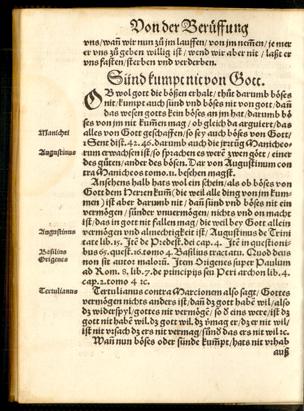 Von der Berüffung
vns/wañ wir nun zů jm lauffen/von jm nemen/je mer
er vns zů geben willig ist/wend wir aber nit/laßt er
vns fasten/sterben vnd verderben.
Sünd kumpt nit von Gott.
OB wol gott die bößen erhalt/thůt darumb böses
nit/kumpt auch sünd vnd böses nit von gott/dañ
das wesen gotts kein bösen an jm hat/darumb bö
ses von jm nit kum̃en mag/ob gleich da arguiert/das
Manichei
alles von Gott geschaffen/so sey auch böses von Gott/
1 Sent dist.42.46.darumb auch die jrrtůg Manicheo-
Augustinus
rum erwachsen ist/so sprachen es werẽ zwen götte/einer
des gůten/ander des bösen. Dar von Augustinum con
tra Manicheos tomo.11.besehen magst.
Anschens halb hats wol ein schein/als ob böses von
Gott dem Herzen kum̃/die weil alle ding von jm kum-
men/ist aber darumb nit/dañ sünd vnd böses nit ein
vermögen/sünder vnuermögen/nichts vnd on macht
ist/das in gott nit fallen mag/die weil bey Gott allein
Augustinus
vermögen vnd almechtigkeit ist/Augustinus de Trini
tate lib.15.Itẽ de Predest.dei cap.4. Itẽ in questioni-
Basilius
bus 65.quest.16.tomo 4.Basilius tractatu. Quod deus
Origenes
non sit autor malorũ. Item Origenes super Paulum
ad Rom.8.lib.7.de principijs seu Peri archon lib.4.
cap.2.tomo 4 ꝛc.
Tertulianus
Tertulianus contra Marcionem also sagt/Gottes
vermögen nichts anders ist/dañ dz gott habẽ wil/also
dz widerspyl/gottes nit vermögẽ/so d eins were/ist dz
gott nit habẽ wil.dz gott wil.dz v̈mag er/dz er nit wil/
ist nit vrsach dz ers nit vermag/sünd das ers nit wil ꝛc.
Wañ nun böses oder sünde kumpt/hats nit vrhab
auß